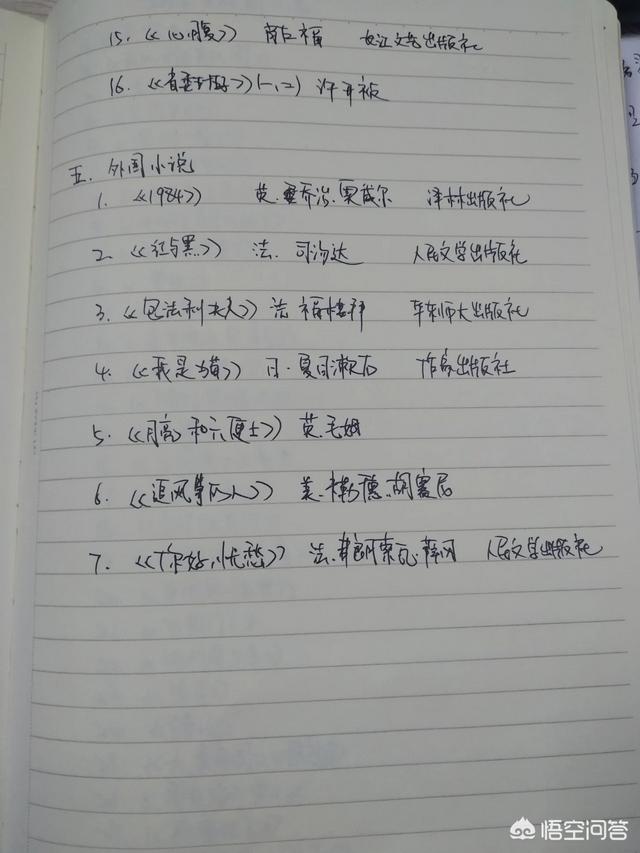 15. 《心腹》 南仁福 长江文艺出版社
16. 《查无此人》(一、二) 许开祯
五. 外国小说
1. 《1984》 英.乔治.奥威尔 译林出版社
2. 《红与黑》 法.司汤达 人民文学出版社
3. 《包法利夫人》 法 福楼拜 华东师大出版社
4. 《我是猫》 日.夏目漱石 作家出版社
5. 《月亮和六便士》 英.毛姆
6. 《追风筝的人》 美.卡勒德.胡赛尼
7. 《你好,忧愁》 法.弗朗索瓦.萨冈 人民文学出版社
悟空问答